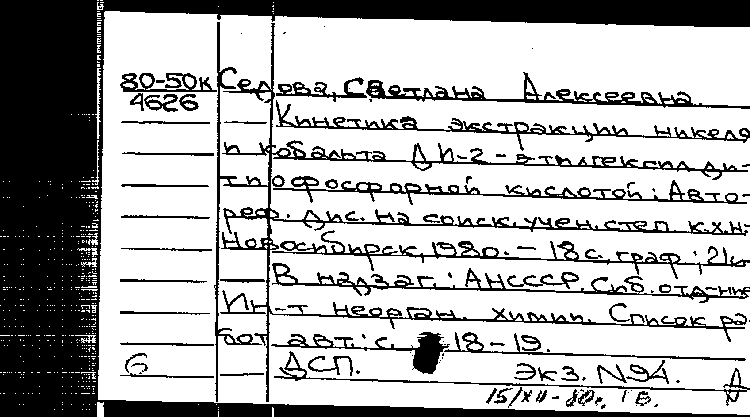 80-50к Седова, Светлана Алексеевна.
4626
Кинетика экстракции никеля
и кобальта Ди-2-этилгексилди-
тиофосфорной кислотой: Авто-
реф. дис. на соиск. учен. степ к.х.н-
Новосибирск, 1980. - 18 с, граф; 21
В надзаг.: АНСССР. Сиб. отд-ние
Ин-т неорган. химии. Список ра-
бот авт.: с. 18-19.
6 ДСП. Экз. N94.
15/XII-80г.